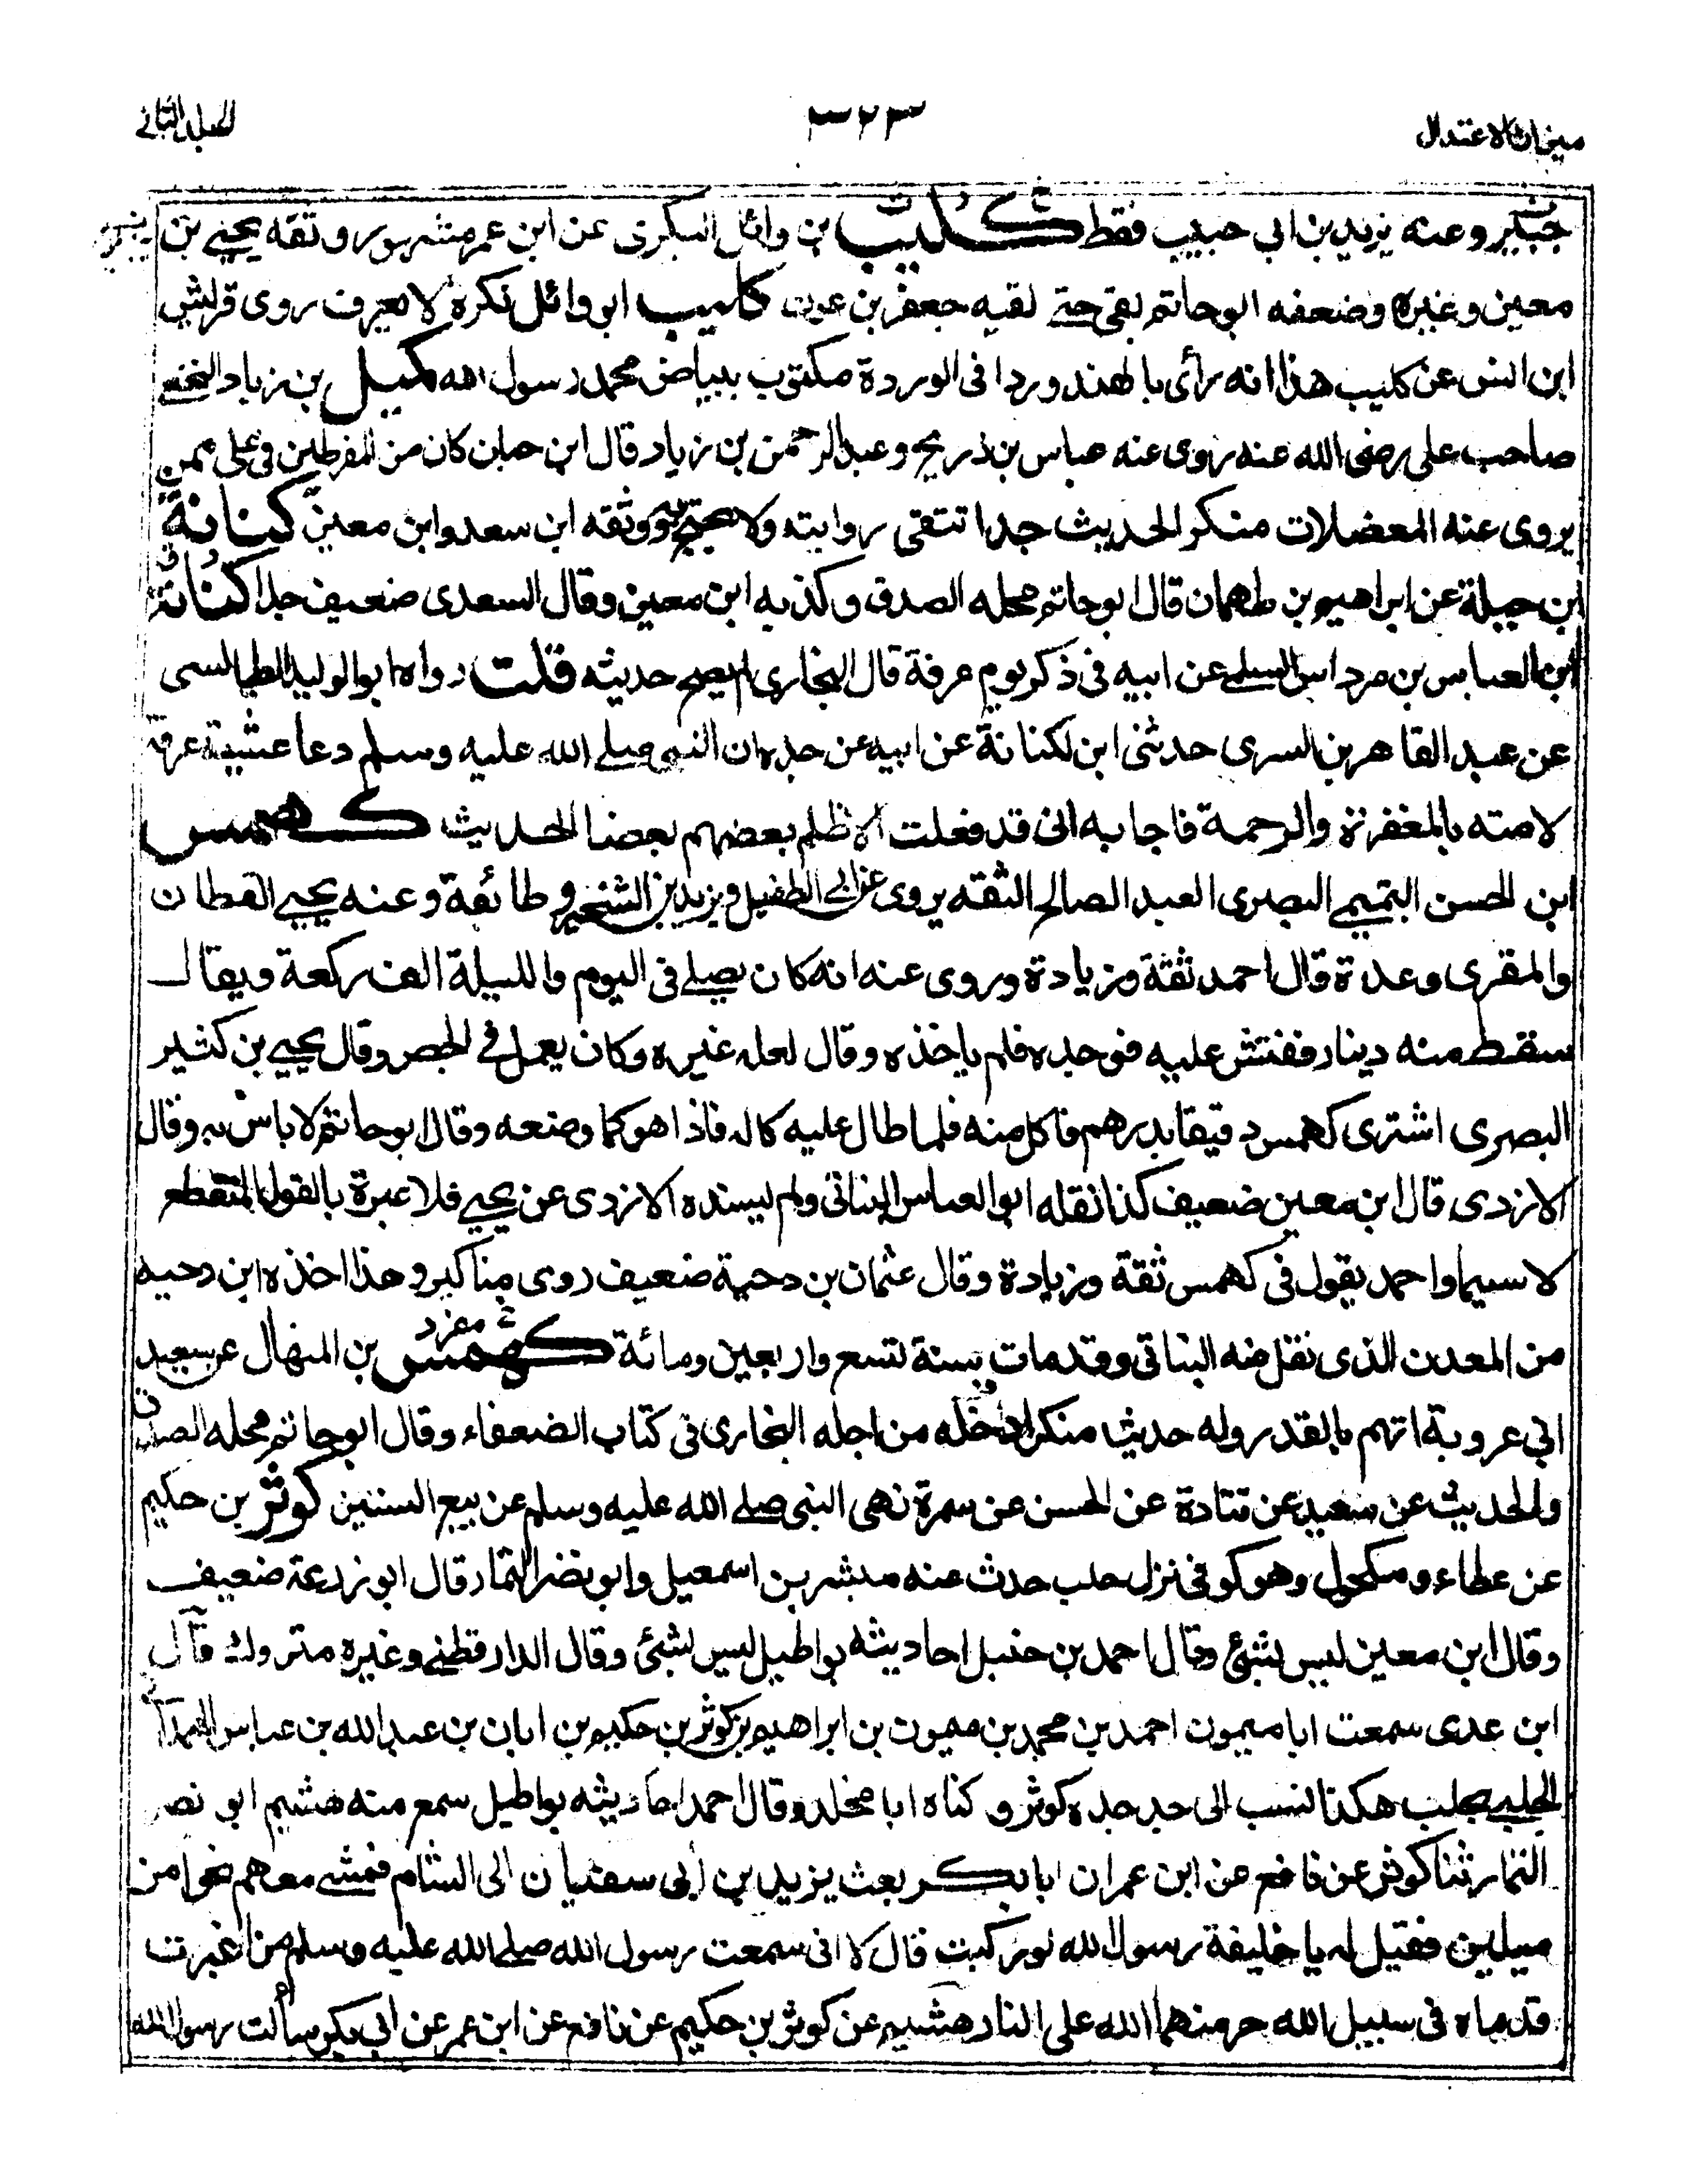 ميزان الاعتدال
٣٢٣
المجلد الثاني
جبير وعنه يزيد بن ابي حبيب فقط كليب بن وائل البكرى عن ابن عمر مشهور وثقه يحيى بن
معين وغيره وضعفه ابو حاتم بقى حتى لقيه جعفر بن عون كليب ابو وائل نكرة لا يعرف روى قريش
ابن انس عن كليب هذا انه رأى بالهند وردا فى الوردة مكتوب ببياض محمد رسول الله كميل بن زياد النخعى
صاحب على رضى الله عنه روى عنه عباس بن ذريح وعبد الرحمن بن زياد قال ابن حبان كان من المفرطين فى على ممن
يروى عنه المعضلات منكر الحديث جدا تتقى روايته ولا يحتج به ووثقه ابن سعد وابن معين كنانة
ابن جبلة عن ابراهيم بن طهمان قال ابو حاتم محله الصدق وكذبه ابن معين وقال السعدى ضعيف جدا كنانة
ابن العباس بن مرداس السلمى عن ابيه فى ذكر يوم عرفة قال البخارى لم يصح حديثه قلت رواه ابو الوليد الطيالسى
عن عبد القاهر بن السرى حدثنى ابن لكنانة عن ابيه عن جده ان النبى صلى الله عليه وسلم دعا عشية عرفة
لامته بالمغفرة والرحمة فاجابه انى قد فعلت الا ظلم بعضهم بعضا الحديث كهمس
ابن الحسن التميمى البصرى العبد الصالح الثقه يروى عن ابى الطفيل ويزيد بن الشخير وطائفة وعنه يحيى القطان
والمقرى وعدة قال احمد ثقة وزيادة وروى عنه انه كان يصلى فى اليوم والليلة الف ركعة ويقال
سقط منه دينار ففتش عليه فوجده فلم ياخذه وقال لعله غيره وكان يعمل فى الجص وقال يحيى بن كثير
البصرى اشترى كهمس دقيقا بدرهم فاكل منه فلما طال عليه كاله فاذا هو كما وضعه وقال ابو حاتم لا باس به وقال
الازدى قال ابن معين ضعيف كذا نقله ابو العباس البناتى ولم يسنده الازدى عن يحيى فلا عبرة بالقول المنقطع
لا سيما واحمد يقول فى كهمس ثقة وزيادة وقال عثمان بن دحية ضعيف روى مناكير وهذا اخذه ابن دحيه
من المعدن الذى نقل منه البناتى وقد مات سنة تسع واربعين ومائة مفرد كهمس بن المنهال عن سعيد
ابى عروبة اتهم بالقدر وله حديث منكر ادخله من اجله البخارى فى كتاب الضعفاء وقال ابو حاتم محله الصدق
والحديث عن سعيد عن قتادة عن الحسن عن سمرة نهى النبى صلى الله عليه وسلم عن بيع السنين كوثر بن حكيم
عن عطاء ومكحول وهو كوفى نزل حلب حدث عنه مبشر بن اسمعيل وابو نضر التمار قال ابو زرعة ضعيف
وقال ابن معين ليس بشئ وقال احمد بن حنبل احاديثه بواطيل ليس بشئ وقال الدارقطنى وغيره متروك قال
ابن عدى سمعت ابا ميمون احمد بن محمد بن ميمون بن ابراهيم بن كوثر بن حكيم بن ابان بن عبد الله بن عباس
الحلبى بحلب هكذا نسب الى جد جده كوثر وكناه ابا مخلد وقال احمد احاديثه بواطيل سمع منه هشيم ابو نصر
التمار ثنا كوثر عن نافع عن ابن عمر ان ابا بكر بعث يزيد بن أبى سفيان الى الشام فمشى معهم نحوا من
ميلين فقيل له يا خليفة رسول الله لو ركبت قال لا انى سمعت رسول الله صلى الله عليه وسلم من اغبرت
قدماه فى سبيل الله حرمهما الله على النار هشيم عن كوثر بن حكيم عن نافع عن ابن عمر عن ابى بكر سألت رسول الله